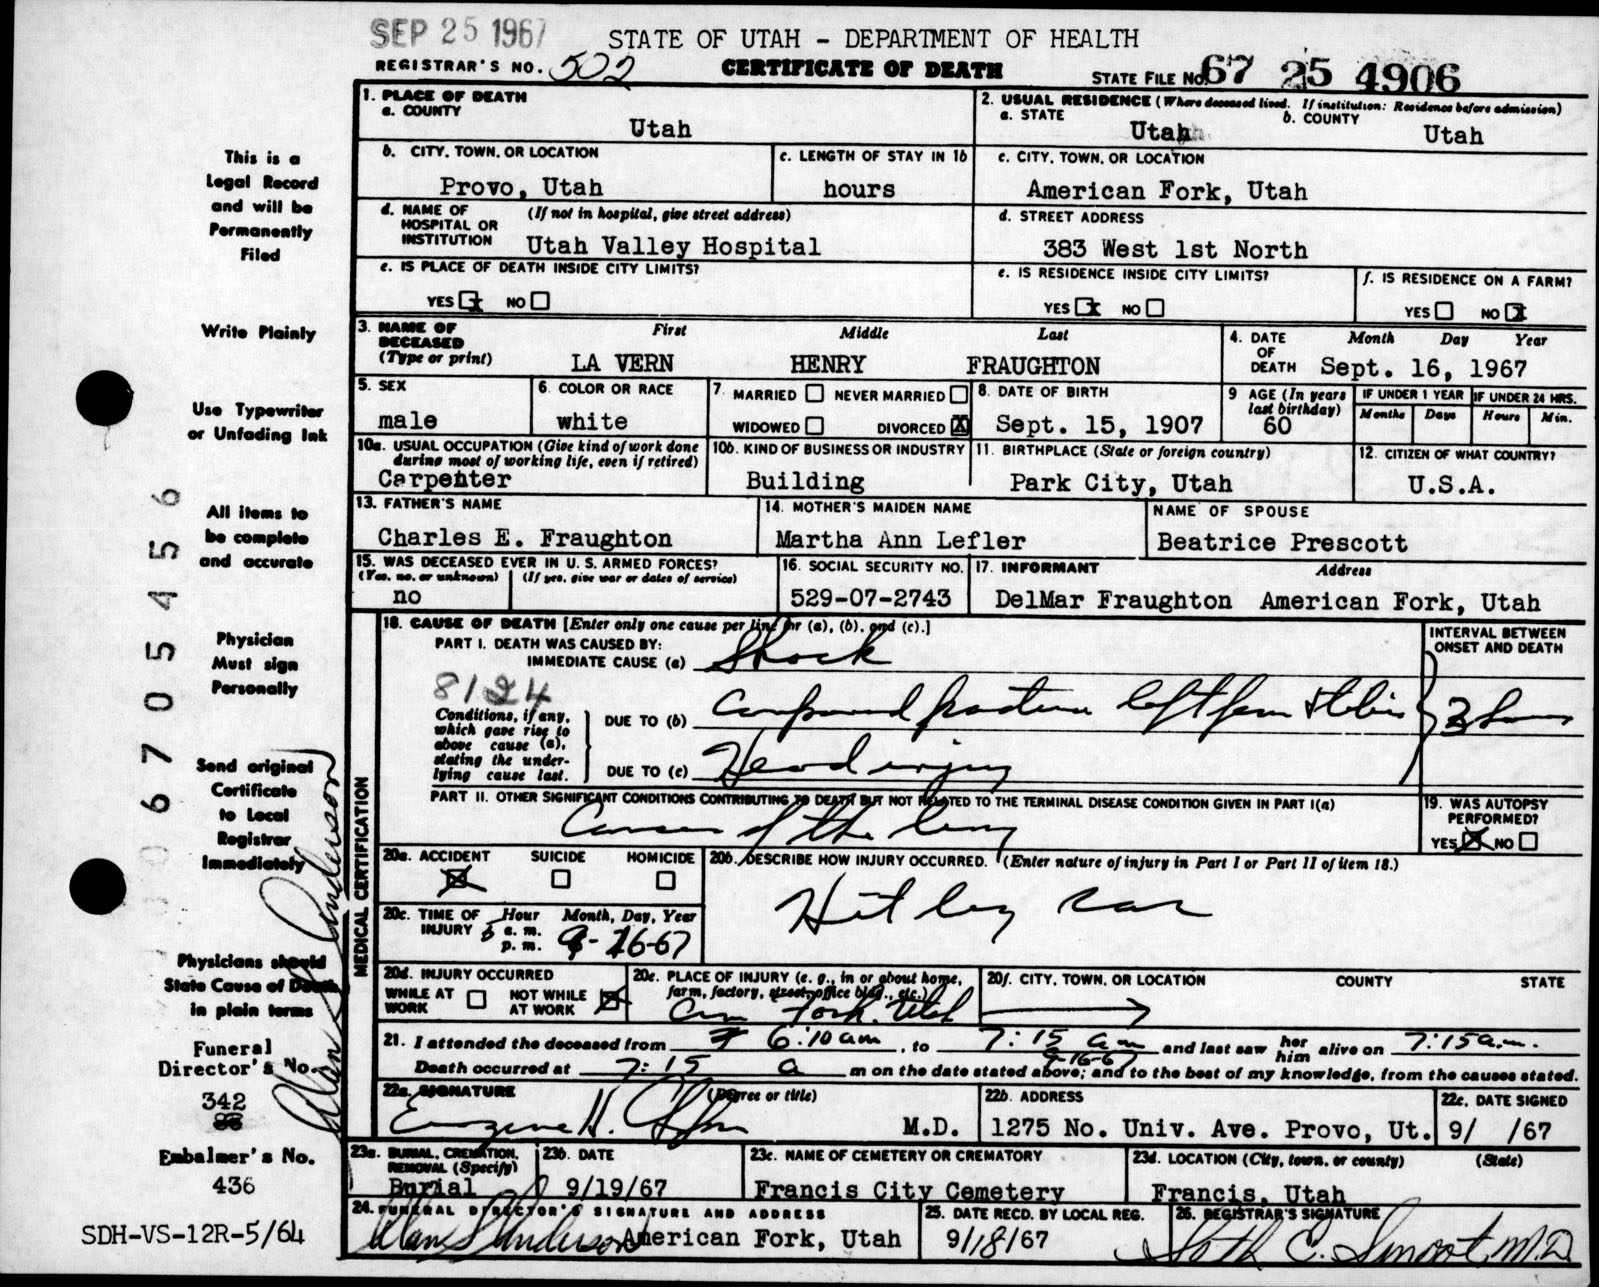 SEP 25 1967
STATE OF UTAH - DEPARTMENT OF HEALTH
REGISTRAR'S NO. 502
CERTIFICATE OF DEATH
STATE FILE NO. 67 25 4906
This is a
Legal Record
and will be
Permanently
Filed
Write Plainly
Use Typewriter
or Unfading Ink
All items to
be complete
and accurate
Physician
Must sign
Personally
Send original
Certificate
to Local
Registrar
Immediately
Physicians should
State Cause of Death
in plain terms
Funeral
Director's No.
342
Embalmer's No.
436
SDH-VS-12R-5/64
06705456
1. PLACE OF DEATH
a. COUNTY
Utah
2. USUAL RESIDENCE (Where deceased lived. If institution: Residence before admission)
a. STATE b. COUNTY
Utah Utah
b. CITY, TOWN, OR LOCATION
Provo, Utah
c. LENGTH OF STAY IN 1b
hours
c. CITY, TOWN, OR LOCATION
American Fork, Utah
d. NAME OF (If not in hospital, give street address)
HOSPITAL OR
INSTITUTION Utah Valley Hospital
d. STREET ADDRESS
383 West 1st North
e. IS PLACE OF DEATH INSIDE CITY LIMITS?
YES x NO
e. IS RESIDENCE INSIDE CITY LIMITS?
YES x NO
f. IS RESIDENCE ON A FARM?
YES NO x
3. NAME OF First Middle Last
DECEASED
(Type or print) LA VERN HENRY FRAUGHTON
4. DATE Month Day Year
OF
DEATH Sept. 16, 1967
5. SEX
male
6. COLOR OR RACE
white
7. MARRIED NEVER MARRIED
WIDOWED DIVORCED X
8. DATE OF BIRTH
Sept. 15, 1907
9 AGE (In years
last birthday)
60
IF UNDER 1 YEAR
Months Days
IF UNDER 24 HRS.
Hours Min.
10a. USUAL OCCUPATION (Give kind of work done
during most of working life, even if retired)
Carpenter
10b. KIND OF BUSINESS OR INDUSTRY
Building
11. BIRTHPLACE (State or foreign country)
Park City, Utah
12. CITIZEN OF WHAT COUNTRY?
U.S.A.
13. FATHER'S NAME
Charles E. Fraughton
14. MOTHER'S MAIDEN NAME
Martha Ann Lefler
NAME OF SPOUSE
Beatrice Prescott
15. WAS DECEASED EVER IN U.S. ARMED FORCES?
(Yes, no, or unknown) (If yes, give war or dates of service)
no
16. SOCIAL SECURITY NO.
529-07-2743
17. INFORMANT Address
DelMar Fraughton American Fork, Utah
MEDICAL CERTIFICATION
18. CAUSE OF DEATH [Enter only one cause per line for (a), (b), and (c).]
PART I. DEATH WAS CAUSED BY:
IMMEDIATE CAUSE (a) Shock
8124
Conditions, if any,
which gave rise to
above cause (a),
stating the under-
lying cause last.
DUE TO (b) Compound fracture left fem & tibia
DUE TO (c) Head injury
INTERVAL BETWEEN
ONSET AND DEATH
3 hours
PART II. OTHER SIGNIFICANT CONDITIONS CONTRIBUTING TO DEATH BUT NOT RELATED TO THE TERMINAL DISEASE CONDITION GIVEN IN PART I(a)
Cancer of the lung
19. WAS AUTOPSY
PERFORMED?
YES X NO
20a. ACCIDENT SUICIDE HOMICIDE
X
20b. DESCRIBE HOW INJURY OCCURRED. (Enter nature of injury in Part I or Part II of item 18.)
Hit by car
20c. TIME OF Hour Month, Day, Year
INJURY a. m.
p. m. 9-16-67
20d. INJURY OCCURRED
WHILE AT WORK NOT WHILE AT WORK X
20e. PLACE OF INJURY (e. g., in or about home,
farm, factory, street, office bldg., etc.)
Am Fork, Utah
20f. CITY, TOWN, OR LOCATION COUNTY STATE
21. I attended the deceased from 6:10 am, to 7:15 am 9-16-67 and last saw her him alive on 7:15 a.m.
Death occurred at 7:15 a m on the date stated above; and to the best of my knowledge, from the causes stated.
22a. SIGNATURE (Degree or title)
Eugene H. M.D.
22b. ADDRESS
1275 No. Univ. Ave. Provo, Ut.
22c. DATE SIGNED
9/ /67
23a. BURIAL, CREMATION,
REMOVAL (Specify)
Burial
23b. DATE
9/19/67
23c. NAME OF CEMETERY OR CREMATORY
Francis City Cemetery
23d. LOCATION (City, town, or county) (State)
Francis, Utah
24. FUNERAL DIRECTOR'S SIGNATURE AND ADDRESS
Alan S Anderson American Fork, Utah
25. DATE RECD. BY LOCAL REG.
9/18/67
26. REGISTRAR'S SIGNATURE
Seth C. Smoot, M.D.
Alan S Anderson